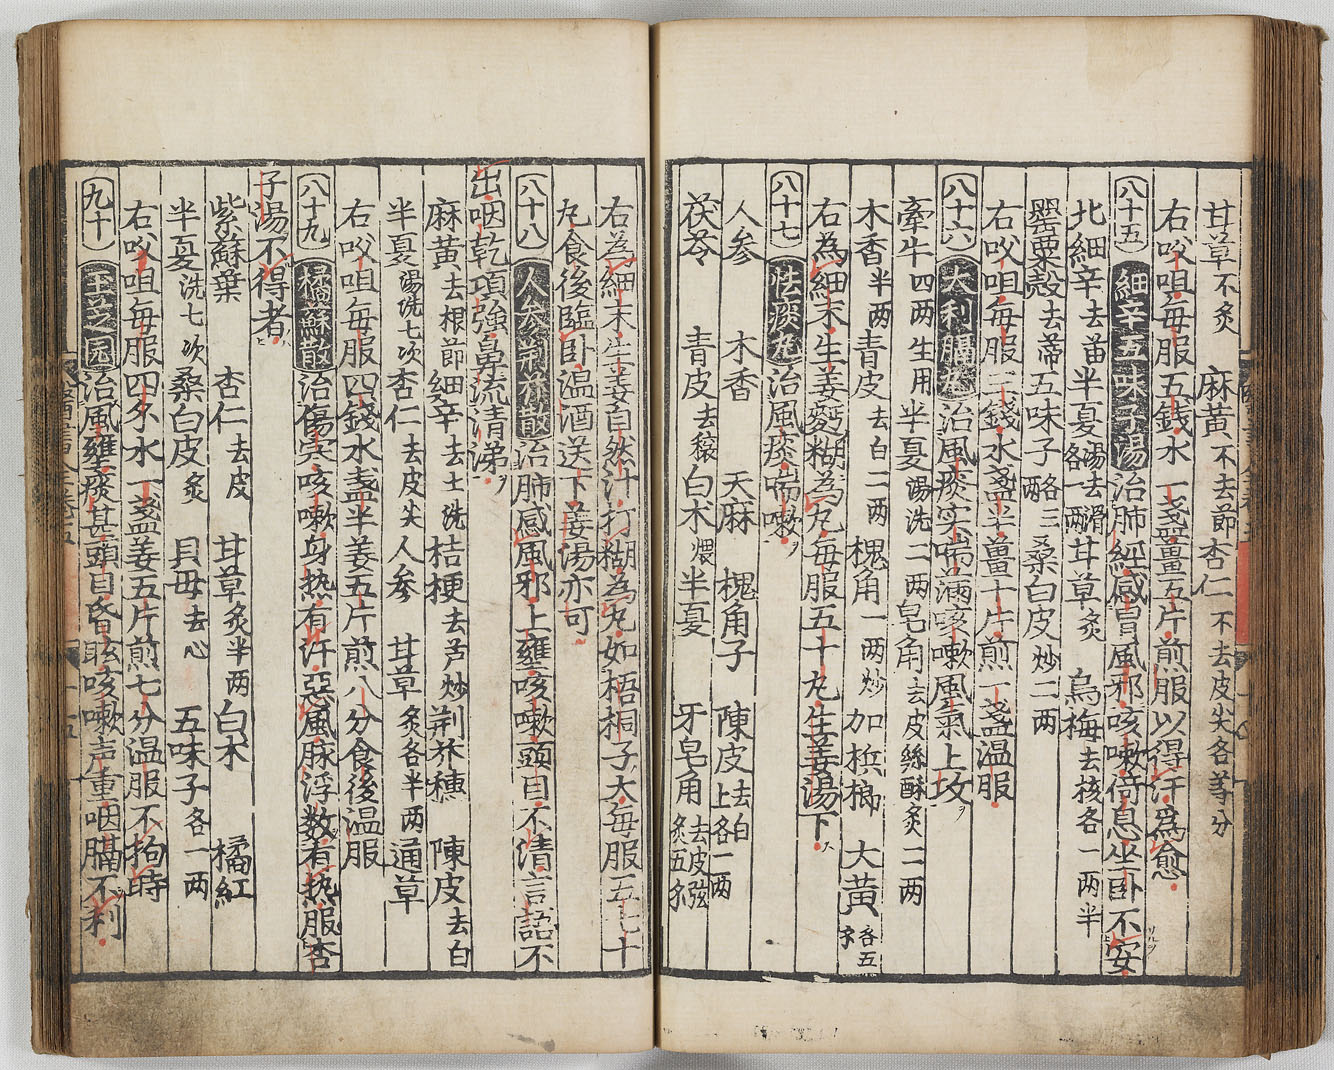 甘草不炙 麻黄不去節杏仁不去皮尖各等分
右㕮咀毎服五錢水一盞薑五片煎服以得汗爲愈
(八十五)細辛五味子湯治肺經感冒風邪咳嗽倚息坐卧不安
北細辛去苗半夏湯去滑各一兩甘草炙 烏梅去核各一兩半
罌粟殼去蒂五味子各三兩桑白皮炒二两
右㕮咀毎服二錢水盞半薑十片煎一盞温服
(八十六)大利膈丸治風痰实喘滿咳嗽風氣上攻
牽牛四两生用 半夏湯洗二两皂角去皮絲酥炙二两
木香半两青皮去白二两 槐角一两炒 加梹榔 大黄各五
右為細末生姜麪糊為丸毎服五十丸生姜湯下
(八十七)怯痰丸治風痰喘嗽
人参 木香 天麻 槐角子 陳皮去白上各一两
茯苓 青皮去穣白术煨半夏 牙皂角去皮弦炙五
右為細末生姜自然汁打糊為丸如梧桐子大毎服五七十
丸食後臨卧温酒送下姜湯亦可
(八十八)人参荊芥散治肺感風邪上壅咳嗽頭目不清言語不
出咽乾項強鼻流清涕
麻黄去根節細辛去土洗桔梗去芦炒荊芥穗 陳皮去白
半夏湯洗七次杏仁去皮尖人参 甘草炙各半两通草
右㕮咀毎服四錢水盞半姜五片煎八分食後温服
(八十九)橘蘇散治傷寒咳嗽身热有汗惡風脉浮数有热服杏
子湯不得者
紫蘇葉 杏仁去皮 甘草炙半两白术 橘紅
半夏洗七次桑白皮炙 貝母去心 五味子各一两
右㕮咀毎服四錢水一盞姜五片煎七分温服不拘時
(九十)玉芝园治風壅痰甚頭目昏眩咳嗽声重咽膈不利